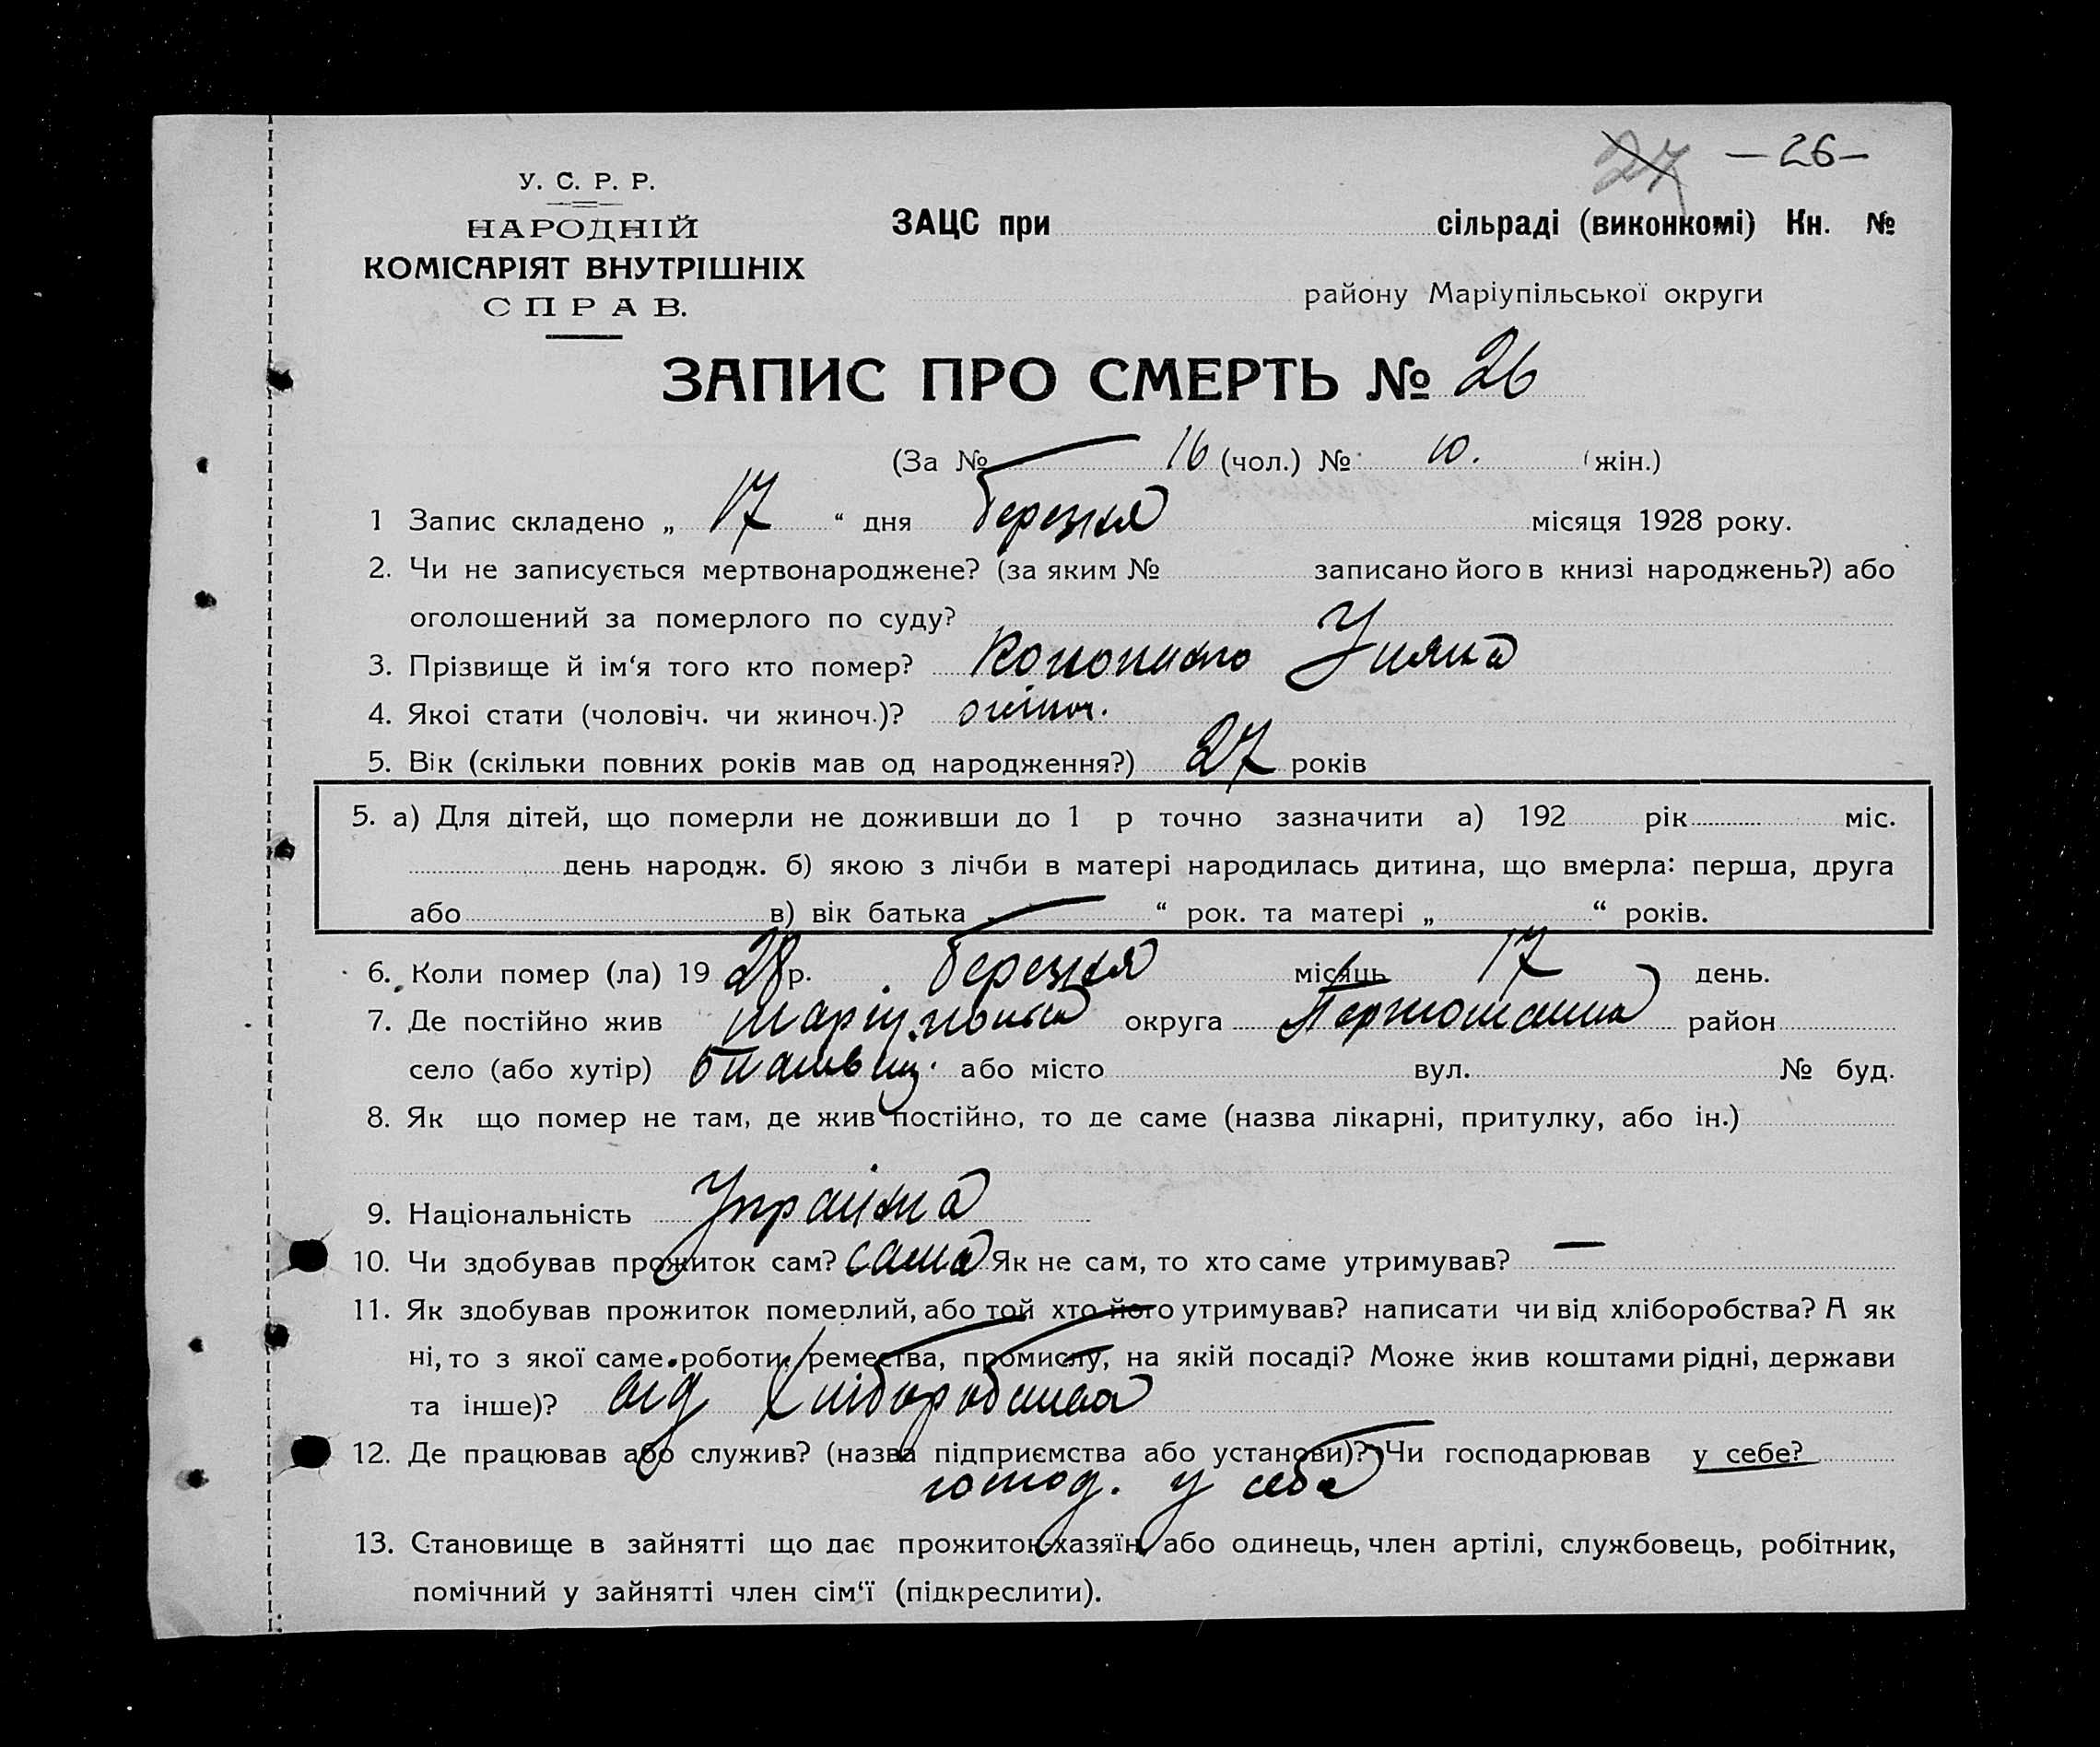 27 — 26 —
У. С. Р. Р.
НАРОДНІЙ
КОМІСАРІЯТ ВНУТРІШНІХ
СПРАВ.
ЗАЦС при сільраді (виконкомі) Кн. №
району Маріупільської округи
ЗАПИС ПРО СМЕРТЬ № 26
(За № 16 (чол.) № 10. (жін.)
1 Запис складено „ 17 “ дня березня місяця 1928 року.
2. Чи не записується мертвонароджене? (за яким № записано його в книзі народжень?) або
оголошений за померлого по суду?
3. Прізвище й ім‘я того кто помер? Уляна
4. Якоі стати (чоловіч. чи жиноч.)? жіноч.
5. Вік (скільки повних років мав од народження?) 27 років
5. а) Для дітей, що померли не доживши до 1 р точно зазначити а) 192 рік міс.
день народж. б) якою з лічби в матері народилась дитина, що вмерла: перша, друга
або в) вік батька “ рок. та матері „ “ років.
6. Коли помер (ла) 19 28 р. березня місяць 17 день.
7. Де постійно жив округа район
село (або хутір) або місто вул. № буд.
8. Як що помер не там, де жив постійно, то де саме (назва лікарні, притулку, або ін.)
9. Національність Українка
10. Чи здобував прожиток сам? сама Як не сам, то хто саме утримував? —
11. Як здобував прожиток померлий, або той хто його утримував? написати чи від хліборобства? А як
ні, то з якої саме роботи, ремества, промислу, на якій посаді? Може жив коштами рідні, держави
та інше)? від хліборобства
12. Де працював або служив? (назва підприємства або установи)? Чи господарював у себе?
господ. у себе
13. Становище в зайнятті що дає прожиток-хазяїн, або одинець, член артілі, службовець, робітник,
помічний у зайнятті член сім‘ї (підкреслити).